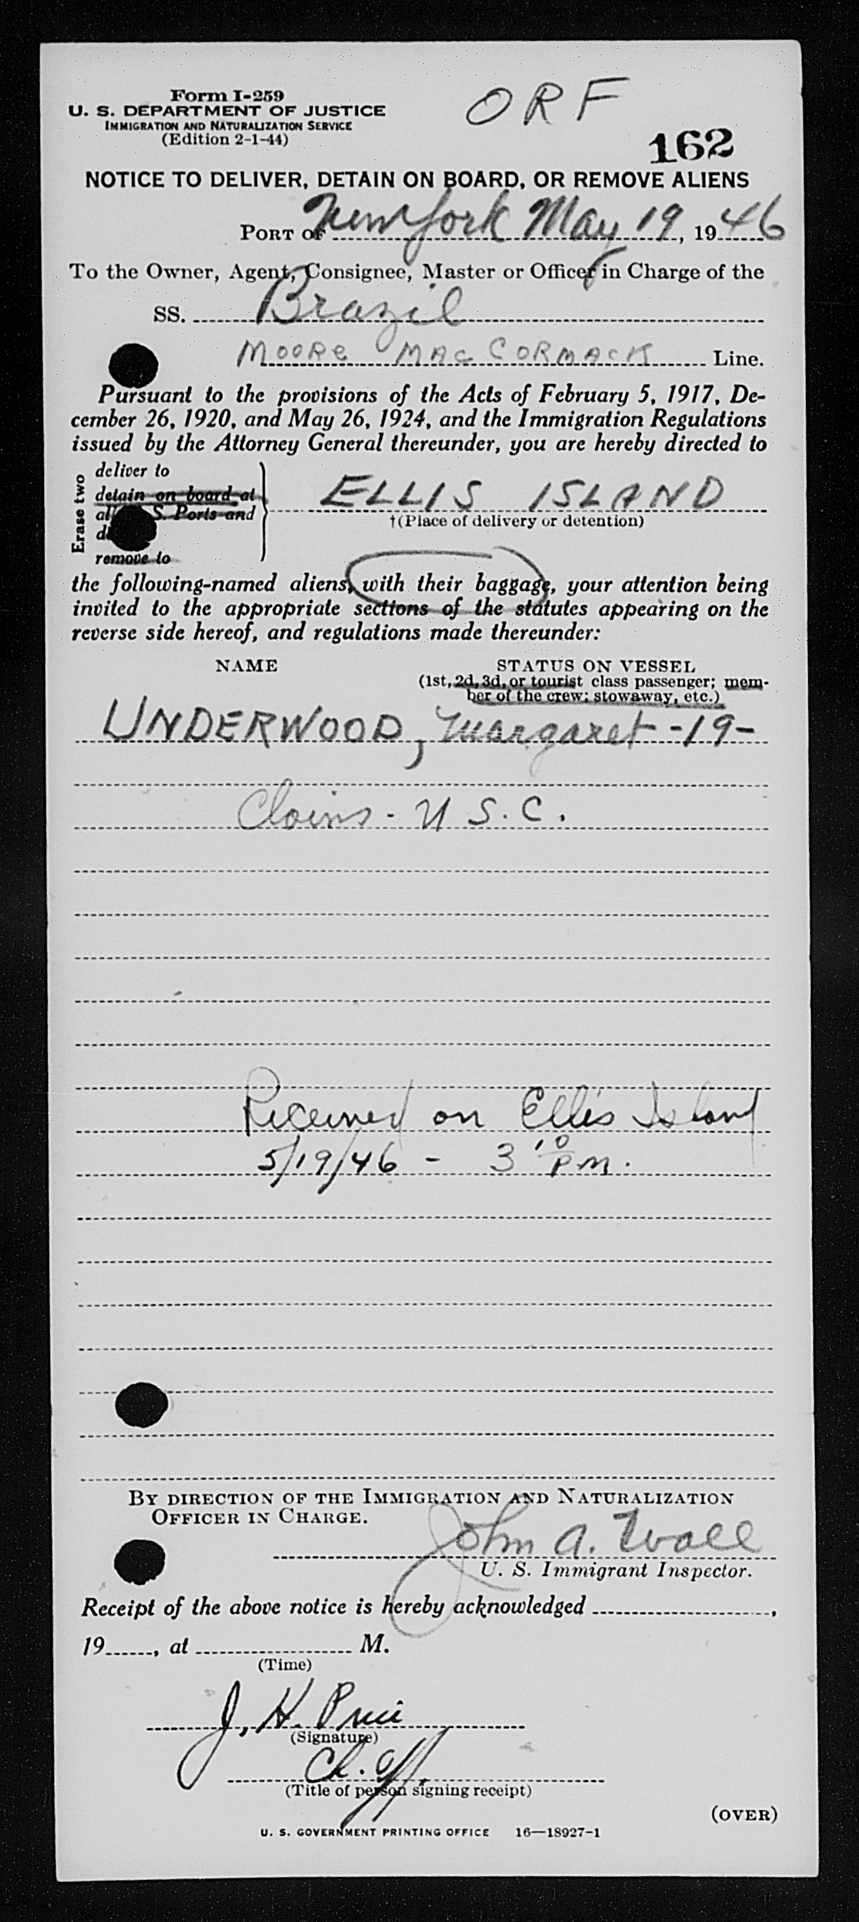 Form I-259
U. S. DEPARTMENT OF JUSTICE
IMMIGRATION AND NATURALIZATION SERVICE
(Edition 2-1-44)
ORF
162
NOTICE TO DELIVER, DETAIN ON BOARD, OR REMOVE ALIENS
PORT OF New York May 19, 1946
To the Owner, Agent, Consignee, Master or Officer in Charge of the
SS. Brazil
MOORE MAC CORMACK Line.
Pursuant to the provisions of the Acts of February 5, 1917, De-
cember 26, 1920, and May 26, 1924, and the Immigration Regulations
issued by the Attorney General thereunder, you are hereby directed to
Erase two
deliver to
detain on board at
S. Ports and
remove to
ELLIS ISLAND
†(Place of delivery or detention)
the following-named aliens, with their baggage, your attention being
invited to the appropriate sections of the statutes appearing on the
reverse side hereof, and regulations made thereunder:
NAME STATUS ON VESSEL
(1st, 2d, 3d, or tourist class passenger; mem-
ber of the crew; stowaway, etc.)
UNDERWOOD, Margaret -19-
Claims - U S. C.
Received on Ellis Island
5/19/46 - 3 10 PM.
BY DIRECTION OF THE IMMIGRATION AND NATURALIZATION
OFFICER IN CHARGE.
John A. Wall
U. S. Immigrant Inspector.
Receipt of the above notice is hereby acknowledged
19, at M.
(Time)
J. H. Price
(Signature)
Ch. Off.
(Title of person signing receipt)
(OVER)
U. S. GOVERNMENT PRINTING OFFICE 16—18927-1